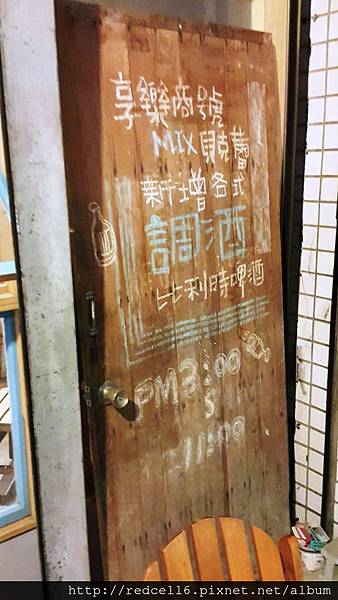 享樂商號
MIX
新增各式
調酒
比利時啤酒
PM3:00
11:00
http://redcell6.pixnet.net/album